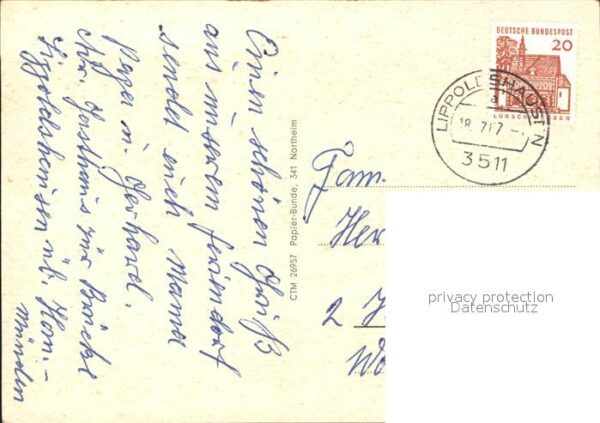 Einen schönen Gruß
aus unserem Feriendorf
sendet euch Mama
Papa u. Gerhard.
Adr. Gasthaus zur Brücke
Lippoldshausen üb. Hann.-
münden
CTM 26957 Papier-Bunde, 341 Northeim
DEUTSCHE BUNDESPOST
20
LORSCH HESSEN
LIPPOLDSHAUSEN
a
18. 7.67
3511
Fam.
Her
2 H
Wo
privacy protection
Datenschutz